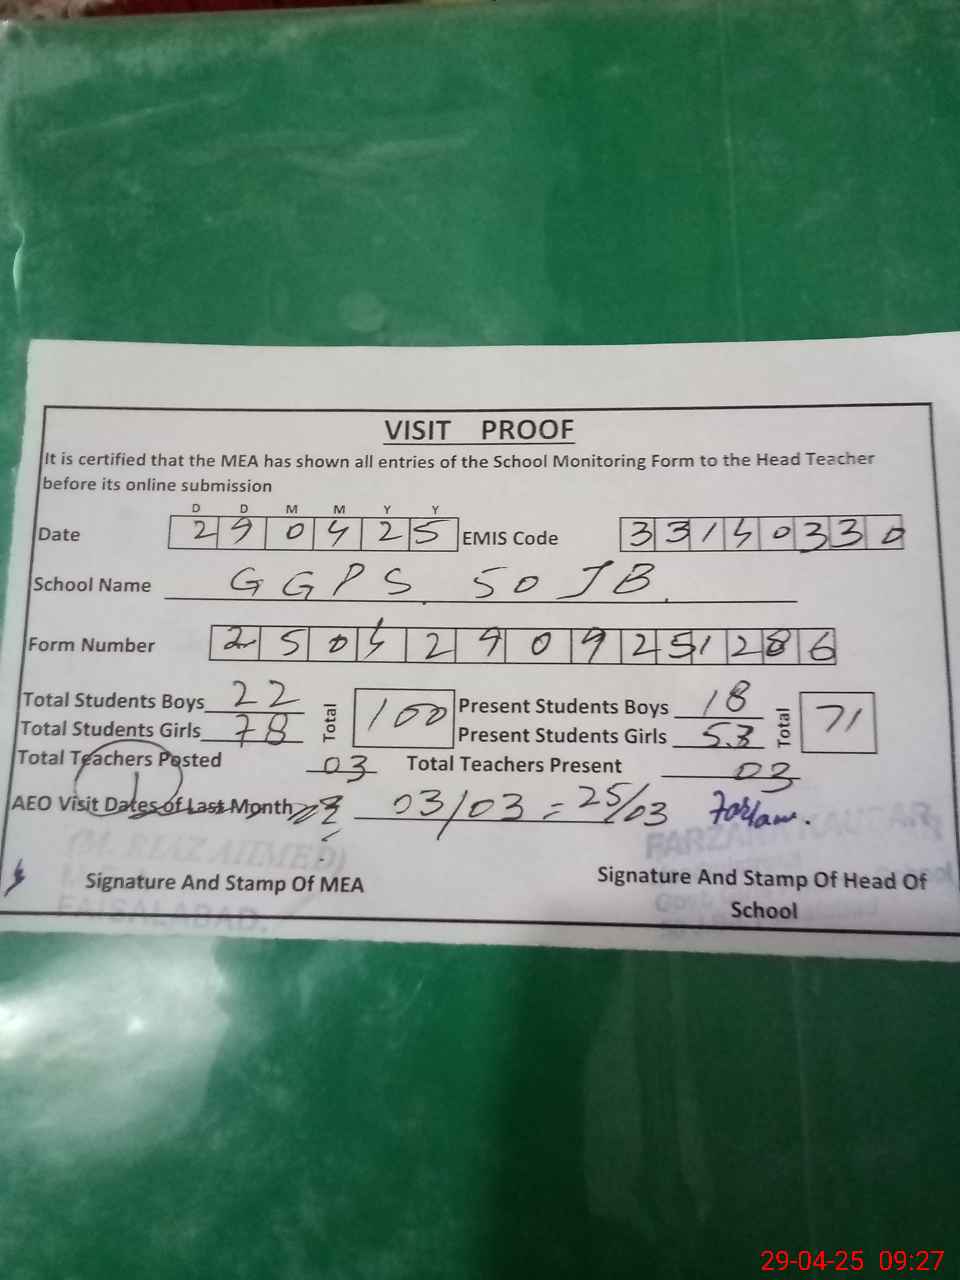 VISIT PROOF
It is certified that the MEA has shown all entries of the School Monitoring Form to the Head Teacher
before its online submission
D D M M Y Y
Date 290425 EMIS Code 33140330
School Name GGPS 50 JB
Form Number 25042909251286
Total Students Boys 22 Total 100 Present Students Boys 18 Total 71
Total Students Girls 78 Present Students Girls 53
Total Teachers Posted 03 Total Teachers Present 03
AEO Visit Dates of Last Month 03/03 = 25/03
(M. RIAZ AHMED) FARZANA KAUSAR
Signature And Stamp Of MEA Signature And Stamp Of Head Of
School
FAISALABAD.
29-04-25 09:27